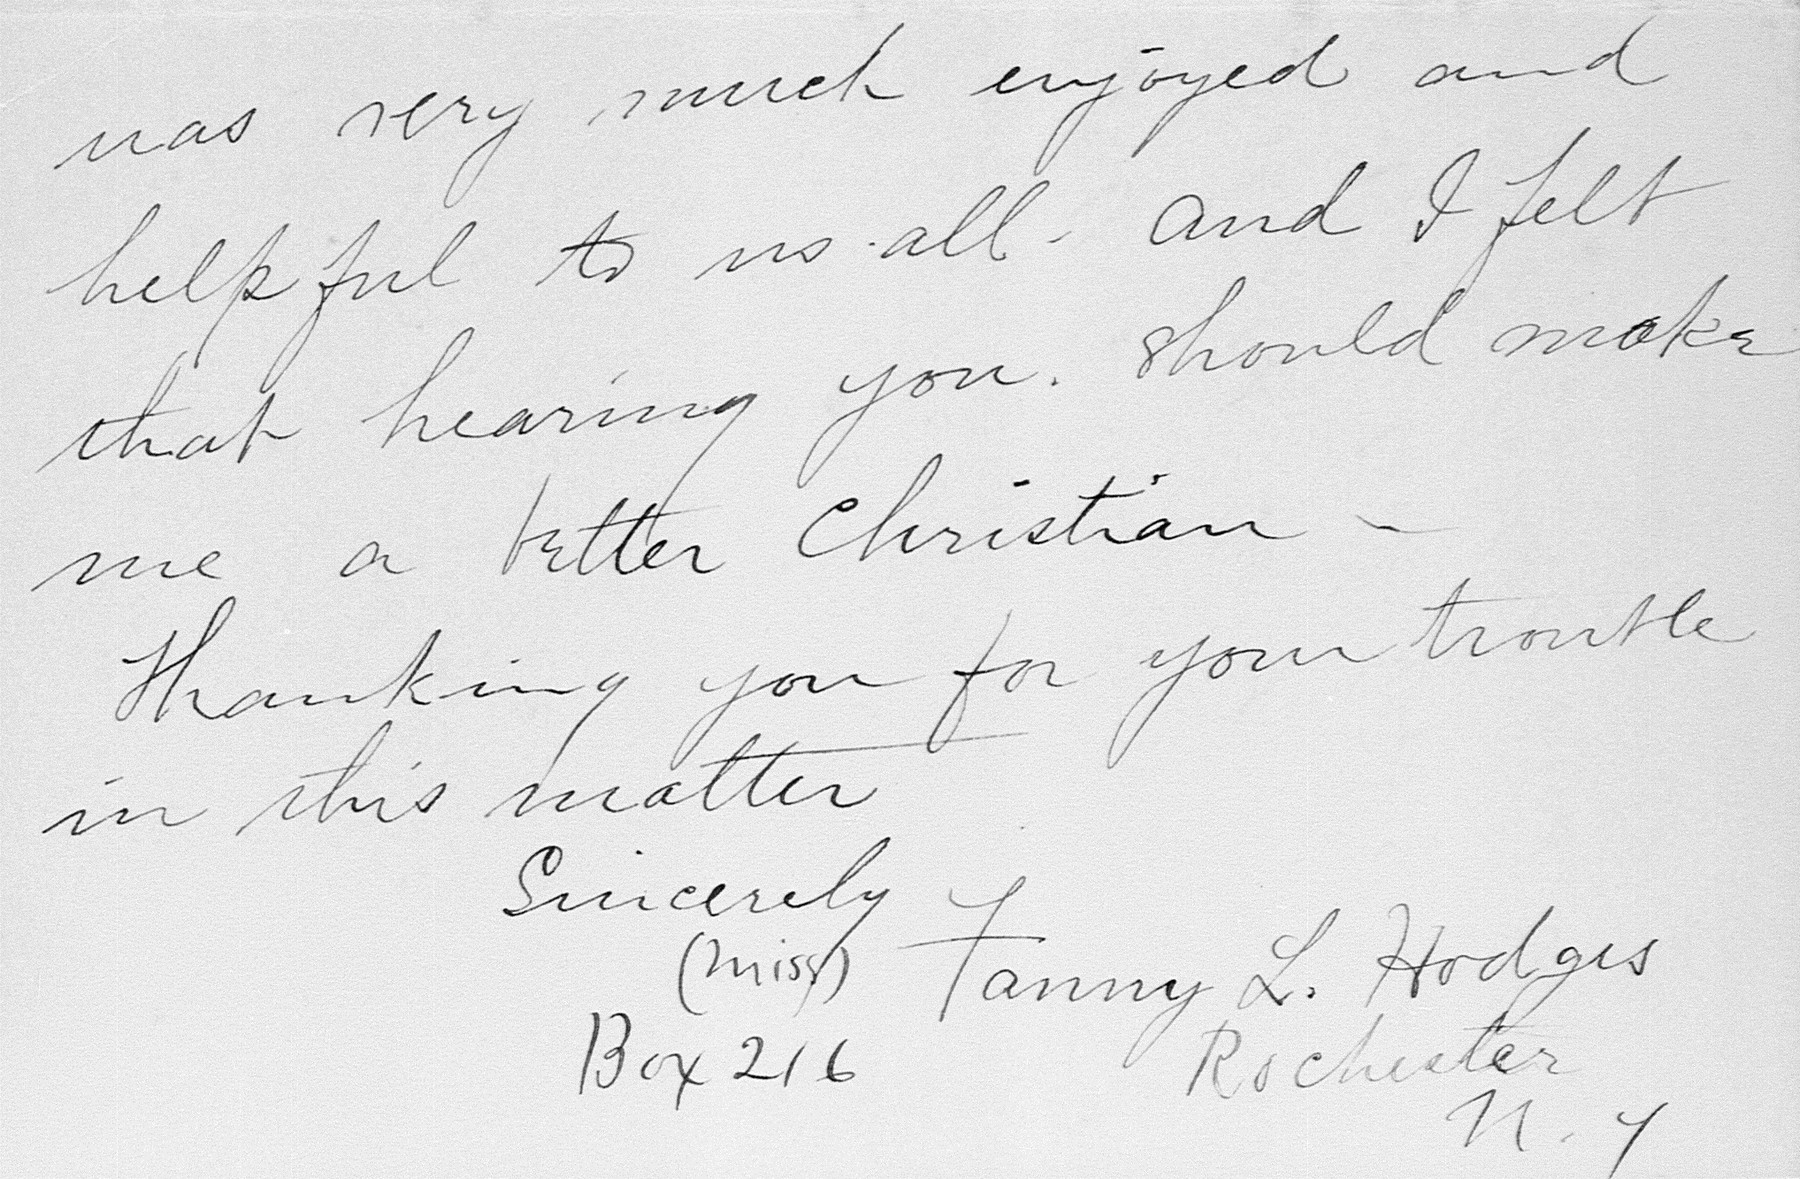 was very much enjoyed and
helpful to us all - And I felt
that hearing you. should make
me a better Christian -
Thanking you for your trouble
in this matter
Sincerely
(Miss) Fanny L. Hodges
Box 216 Rochester
N. Y